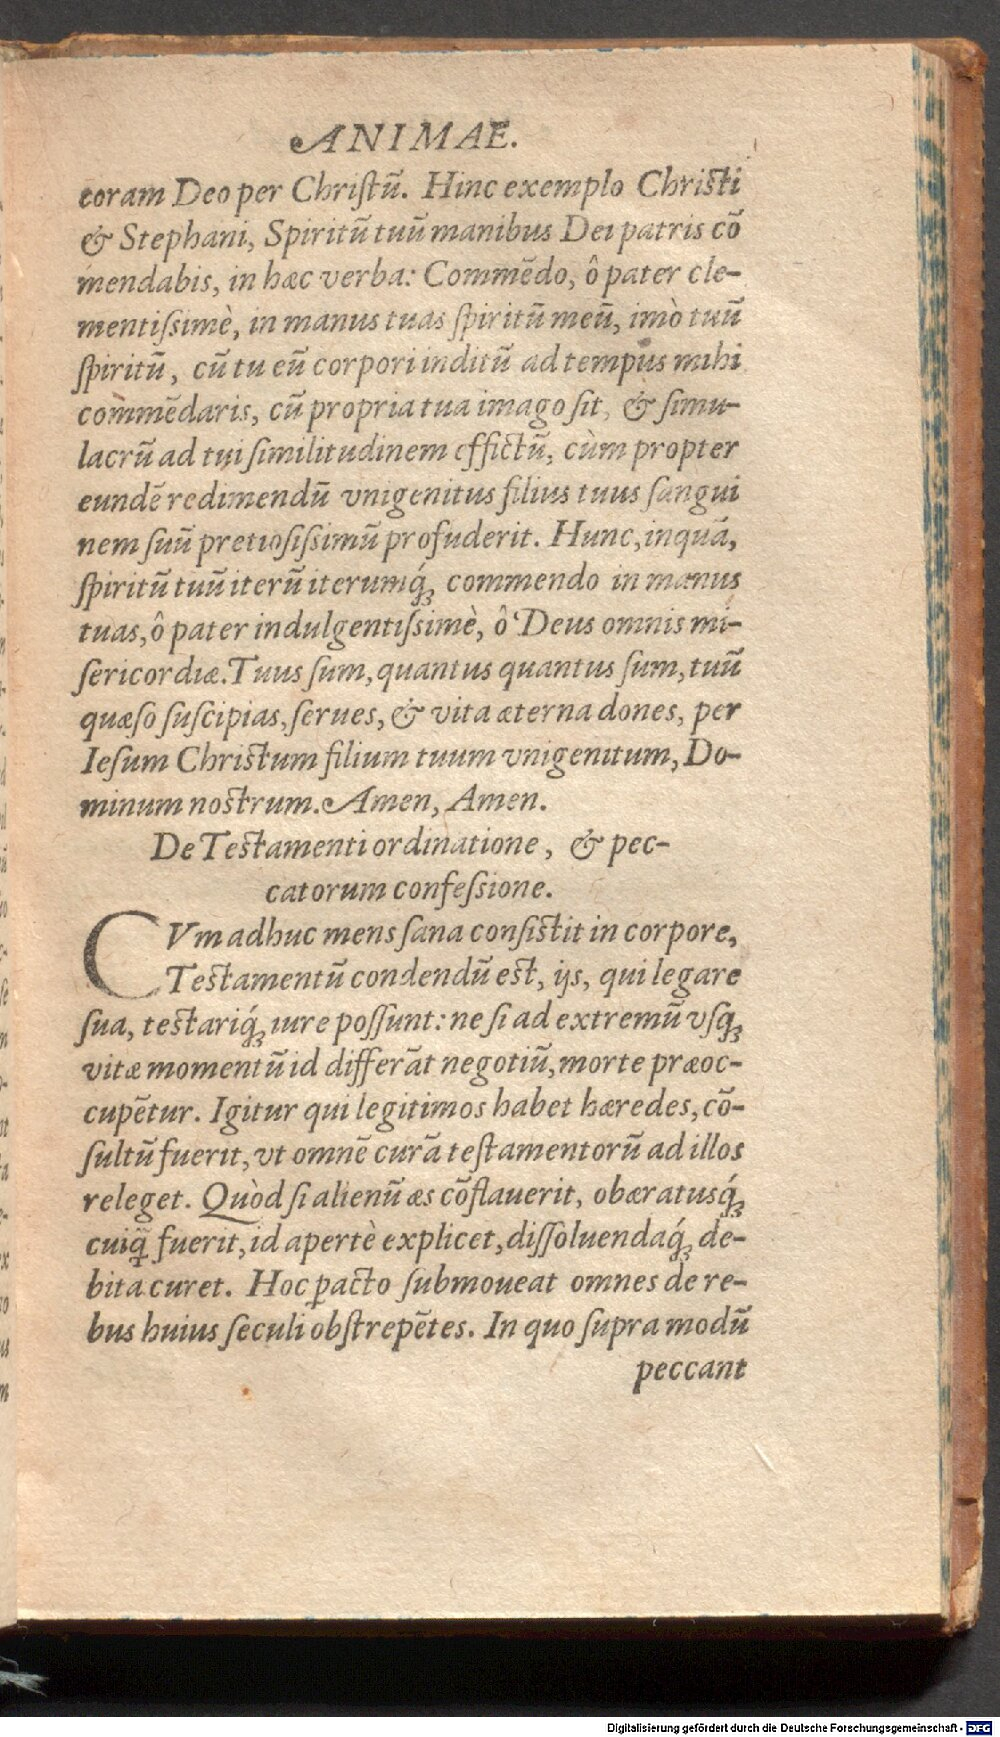 ANIMAE.
coram Deo per Chriſtũ. Hinc exemplo Chriſti
& Stephani, Spiritũ tuũ manibus Dei patris cõ
mendabis, in hæc verba: Commẽdo, ô pater cle-
mentiſsimè, in manus tuas ſpiritũ meũ, imò tuũ
ſpiritũ, cũ tu eũ corpori inditũ ad tempus mihi
commẽdaris, cũ propria tua imago ſit, & ſimu-
lacrũ ad tui ſimilitudinem effictũ, cùm propter
eundẽ redimendũ vnigenitus filius tuus ſangui
nem ſuũ pretioſiſsimũ profuderit. Hunc, inquã,
ſpiritũ tuũ iterũ iterumq́; commendo in manus
tuas, ô pater indulgentiſsimè, ô Deus omnis mi-
ſericordiæ. Tuus ſum, quantus quantus ſum, tuũ
quæſo ſuſcipias, ſerues, & vita æterna dones, per
Ieſum Chriſtum filium tuum vnigenitum, Do-
minum noſtrum. Amen, Amen.
De Teſtamenti ordinatione, & pec-
catorum confeſsione.
CVm adhuc mens ſana conſiſtit in corpore,
Teſtamentũ condendũ eſt, ijs, qui legare
ſua, teſtariq́; iure poſſunt: ne ſi ad extremũ vſq́;
vitæ momentũ id differãt negotiũ, morte præoc-
cupẽtur. Igitur qui legitimos habet hæredes, cõ-
ſultũ fuerit, vt omnẽ curã teſtamentorũ ad illos
releget. Quòd ſi alienũ æs cõflauerit, obæratusq́;
cuiq̃ fuerit, id apertè explicet, diſſoluendaq́; de-
bita curet. Hoc ꝑacto ſubmoueat omnes de re-
bus huius ſeculi obſtrepẽtes. In quo ſupra modũ
peccant
Digitalisierung gefördert durch die Deutsche Forschungsgemeinschaft - DFG